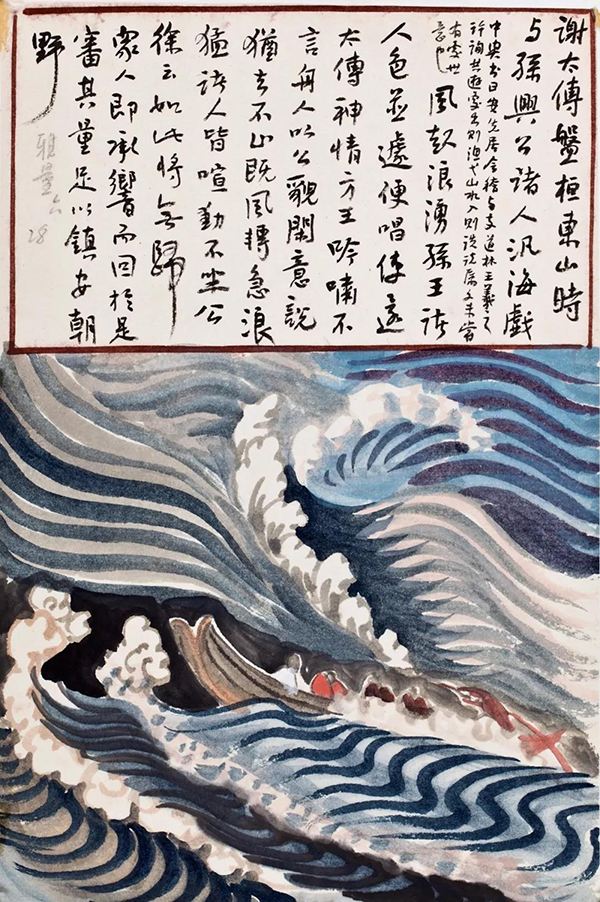 謝太傅盤桓東山時
与孫興公諸人汎海戲
中興書曰安先居會稽与支道林王羲之
許詢共遊處出則漁弋山水入則談說屬文未嘗
有處世意也
風起浪湧孫王諸
人色並遽便唱使還
太傅神情方王吟嘯不
言舟人以公貌閑意說
猶去不止既風轉急浪
猛諸人皆喧動不坐公
徐云如此將无歸
眾人即承響而回於是
審其量足以鎮安朝
野
雅量六
28